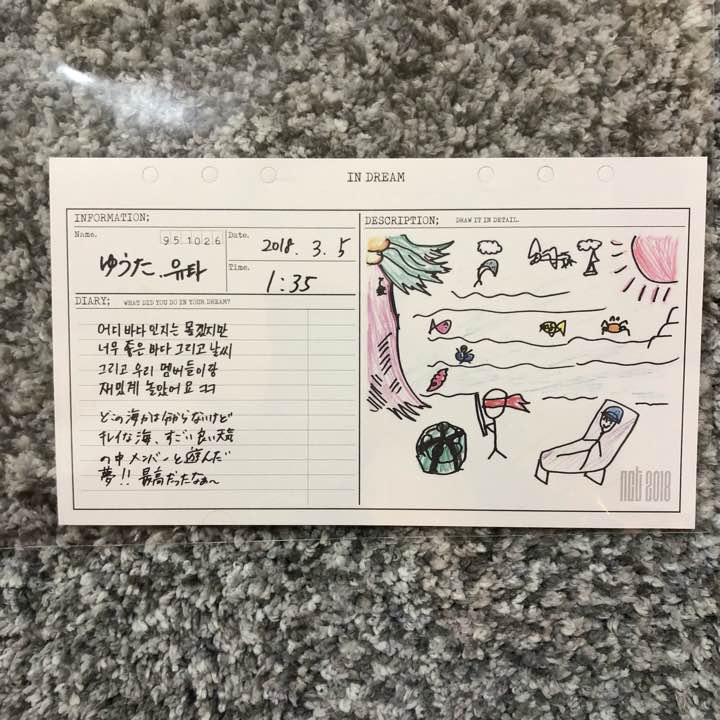 IN DREAM
INFORMATION;
Name.
951026
ゆうた.유타
Date.
2018. 3. 5
Time.
1:35
DIARY; WHAT DID YOU DO IN YOUR DREAM?
어디 바다인지는 모르겠지만
너무 좋은 바다 그리고 날씨
그리고 우리 멤버들이랑
재밌게 놀았어요 ㅋㅋ
どこの海かは分からないけど
キレイな海、すごい良い天気
の中メンバーと遊んだ
夢!! 最高だったなぁ〜
DESCRIPTION; DRAW IT IN DETAIL.
nct 2018